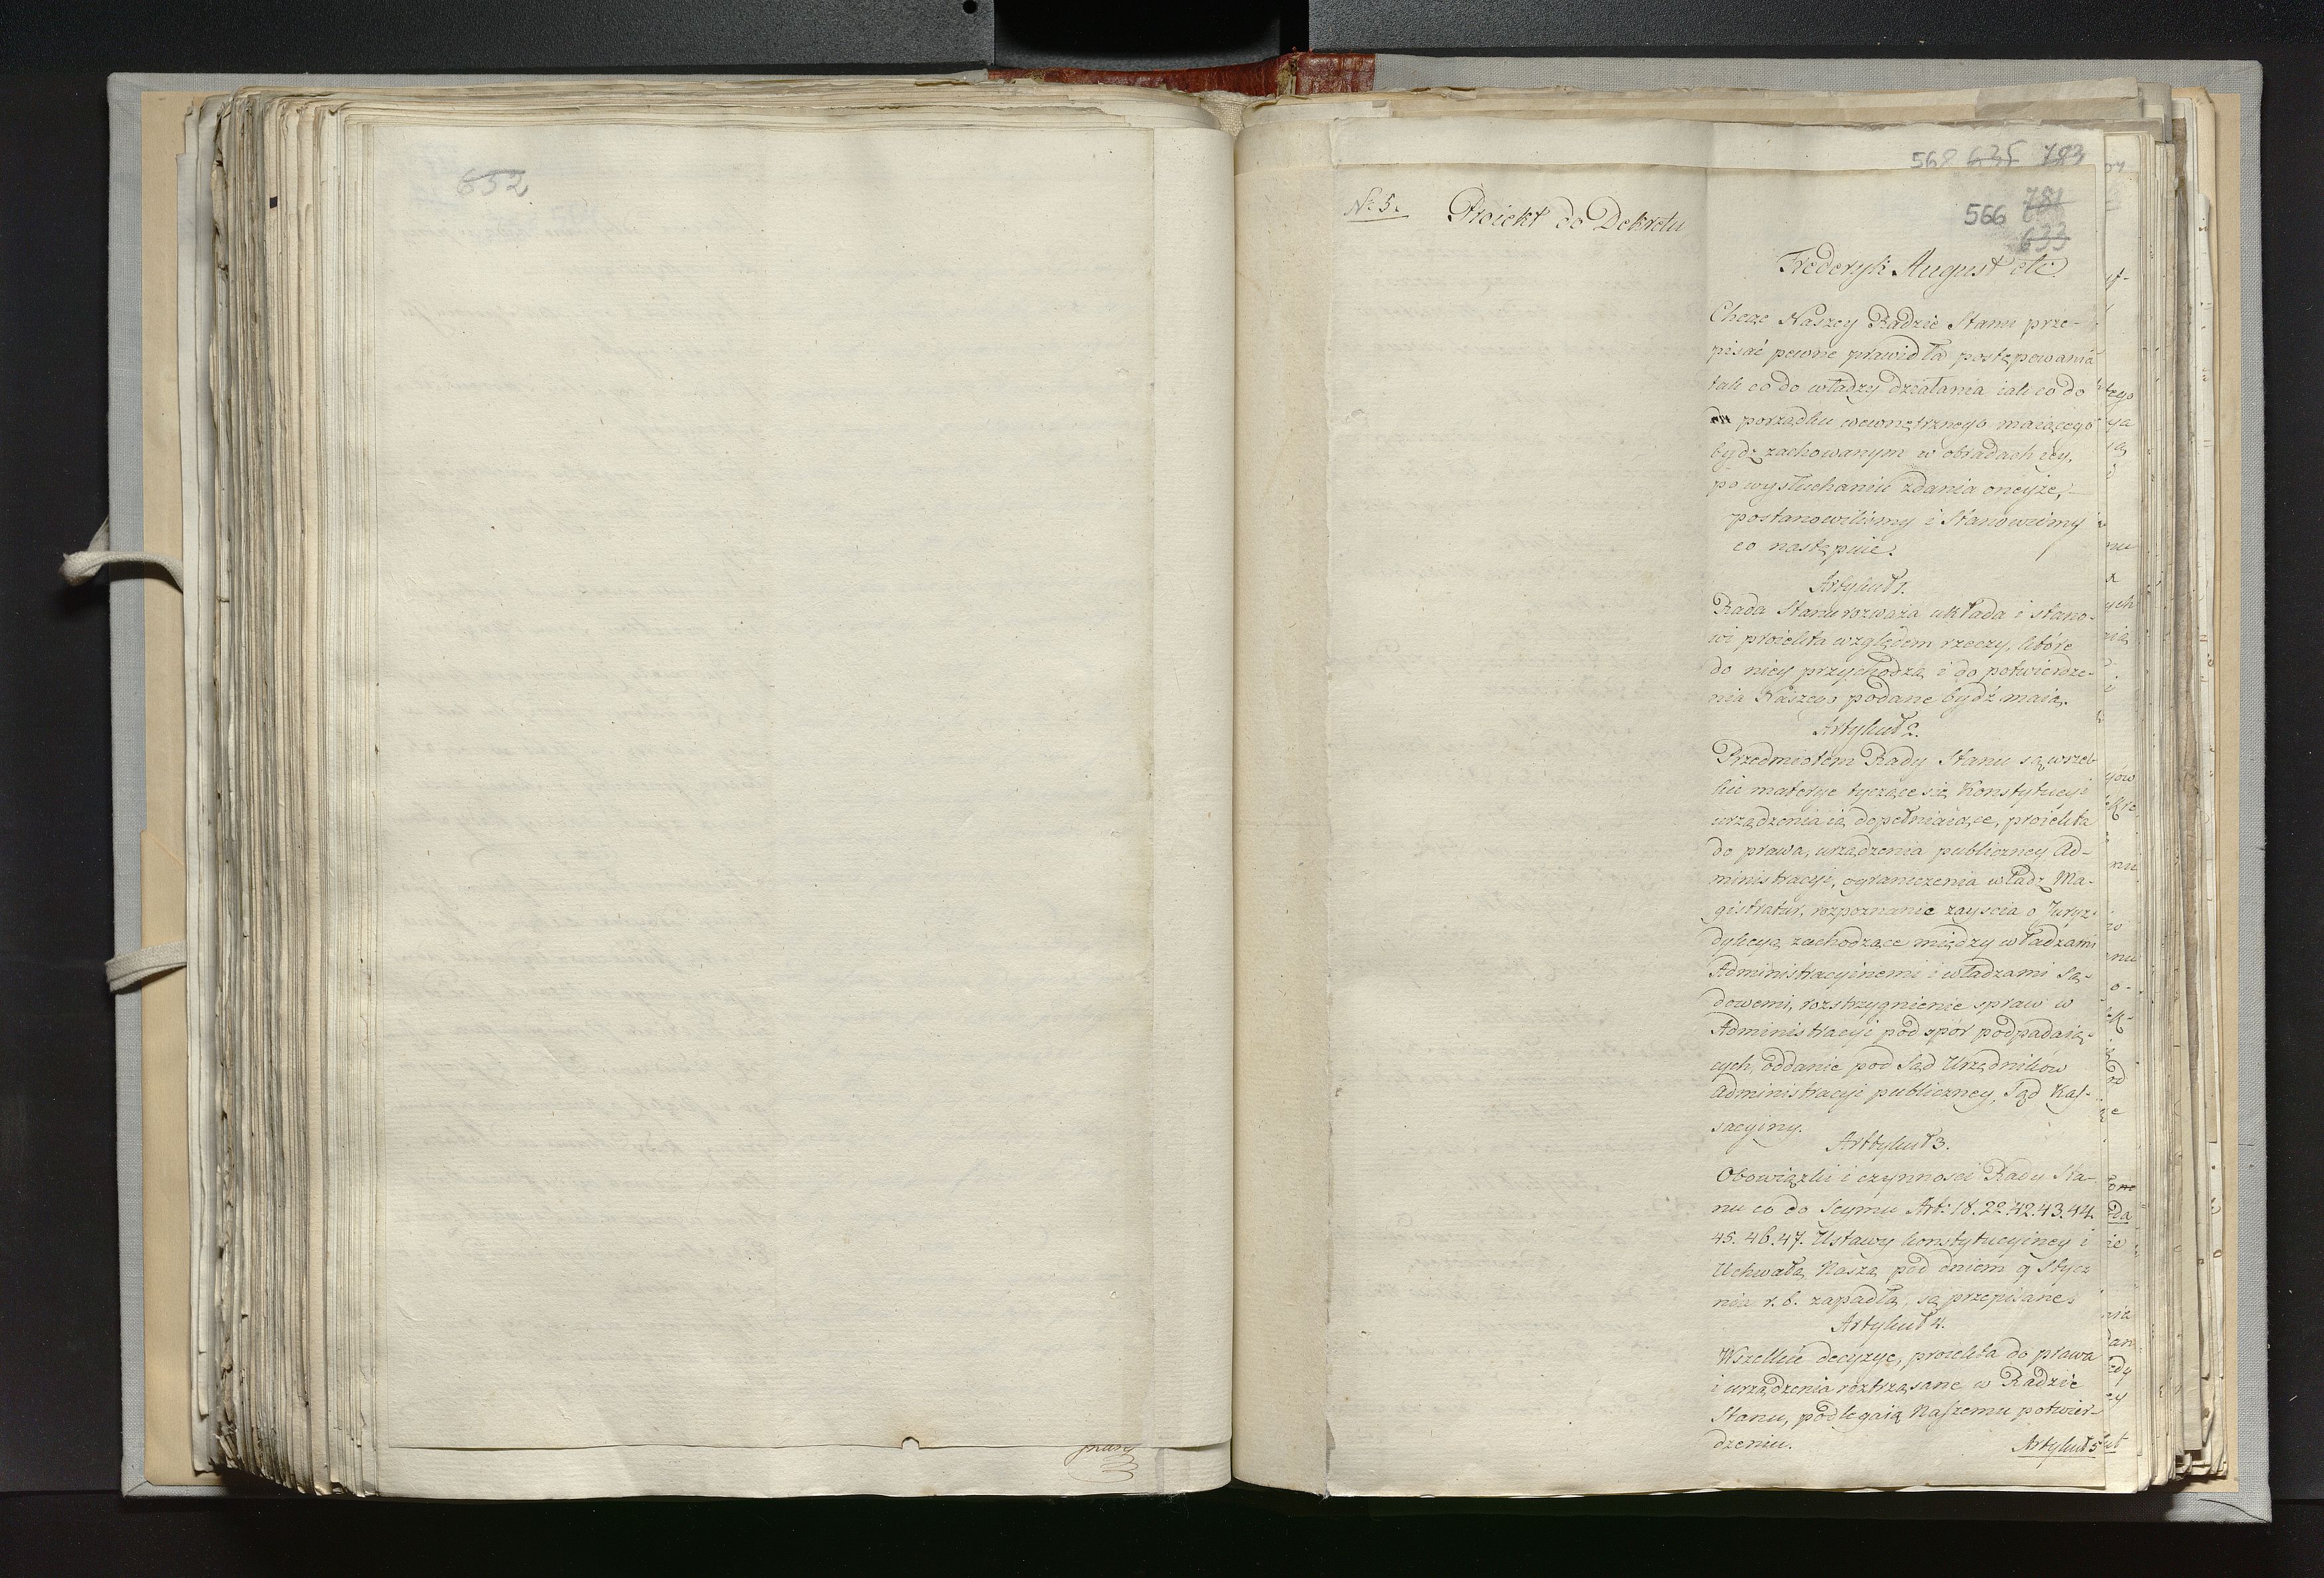 652
568 635 783
No 5. Proiekt do Dekretu
781
566
633
Frederyk August etc
Chcąc Naszey Radzie Stanu prze-
pisać pewne prawidła postępowania
tak co do władzy działania iak co do
porządku wewnętrznego maiącego
bydz zachowanym w obradach iey,
po wysłuchaniu zdania oneyże,
postanowiliśmy i Stanowiemy
co następuie.
Artykuł 1.
Rada Stanu rozważa układa i stano-
wi proiekta względem rzeczy, które
do niey przychodzą i do potwierdze-
nia Naszego podane bydź maią.
Artykuł 2.
Przedmiotem Rady Stanu są wszel-
kie materye tyczące się Konstytucyi
urządzenia ią dopełniaiące, proiekta
do prawa, urządzenia publiczney Ad-
ministracyi, ograniczenia władz Ma-
gistratur, rozpoznanie zayscia o Juryz-
dykcyą zachodzące między władzami
Administracyinemi i władzami Są-
dowemi, rozstrzygnienie spraw w
Administracyi pod spór podpadaią-
cych, oddanie pod Sąd Urzędników
Administracyi publiczney, Sąd Kas-
sacyiny.
Artykuł 3.
Obowiązki i czynności Rady Sta-
nu co do Seymu Art: 18. 22. 42. 43. 44.
45. 46. 47. Ustawy konstytucyiney i
Uchwałą Naszą pod dniem 9 Stycz
nia r. b. zapadłą, są przepisane.
Artykuł 4.
Wszelkie decyzye, proiekta do prawa
i urządzenia roztrząsane w Radzie
Stanu, podlegaią Naszemu potwier-
dzeniu.
Artykuł 5